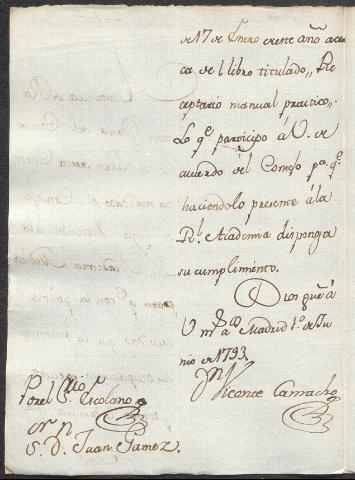 de 17 de Enero de este año acer
ca del libro titulado,, Re
ceptario manual practico,,
Lo q.e participo á V. de
acuerdo del Consejo p.a q.e
haciendolo presente á la
R.l Academia disponga
su cumplimento.
Dios gue á
V m.s a.s Madrid 1.o de Ju
nio de 1793.
Vicente Camacho
Por el S.
Escolano
S. D. Juan Gamez.